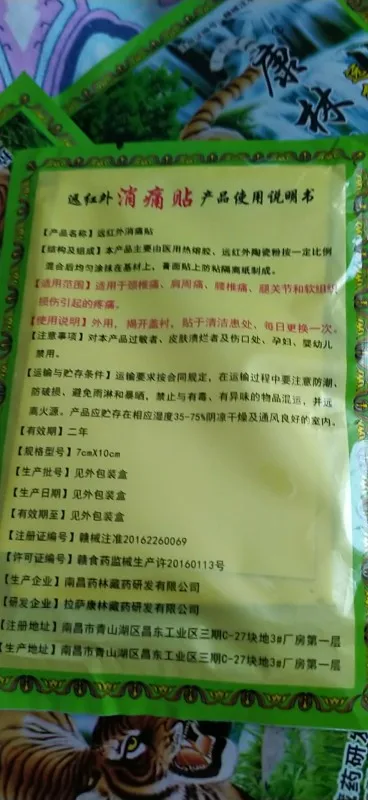 康林
远红外消痛贴产品使用说明书
【产品名称】远红外消痛贴
【结构及组成】本产品主要由医用热熔胶、远红外陶瓷粉按一定比例
混合后均匀涂抹在基材上，膏面贴上防粘隔离纸制成。
【适用范围】适用于颈椎痛、肩周痛、腰椎痛、腿关节和软组织
损伤引起的疼痛。
【使用说明】外用，揭开盖衬，贴于清洁患处、每日更换一次。
【注意事项】对本产品过敏者、皮肤溃烂者及伤口处、孕妇、婴幼儿
禁用。
【运输与贮存条件】运输要求按合同规定，在运输过程中要注意防潮、
防破损、避免雨淋和暴晒，禁止与有毒、有异味的物品混运，并远
离火源。产品应贮存在相应湿度35-75%阴凉干燥及通风良好的室内。
【有效期】二年
【规格型号】7cmX10cm
【生产批号】见外包装盒
【生产日期】见外包装盒
【有效期至】见外包装盒
【注册证编号】赣械注准20162260069
【许可证编号】赣食药监械生产许20160113号
【生产企业】南昌药林藏药研发有限公司
【研发企业】拉萨康林藏药研发有限公司
【注册地址】南昌市青山湖区昌东工业区三期C-27块地3#厂房第一层
【生产地址】南昌市青山湖区昌东工业区三期C-27块地3#厂房第一层
药研发